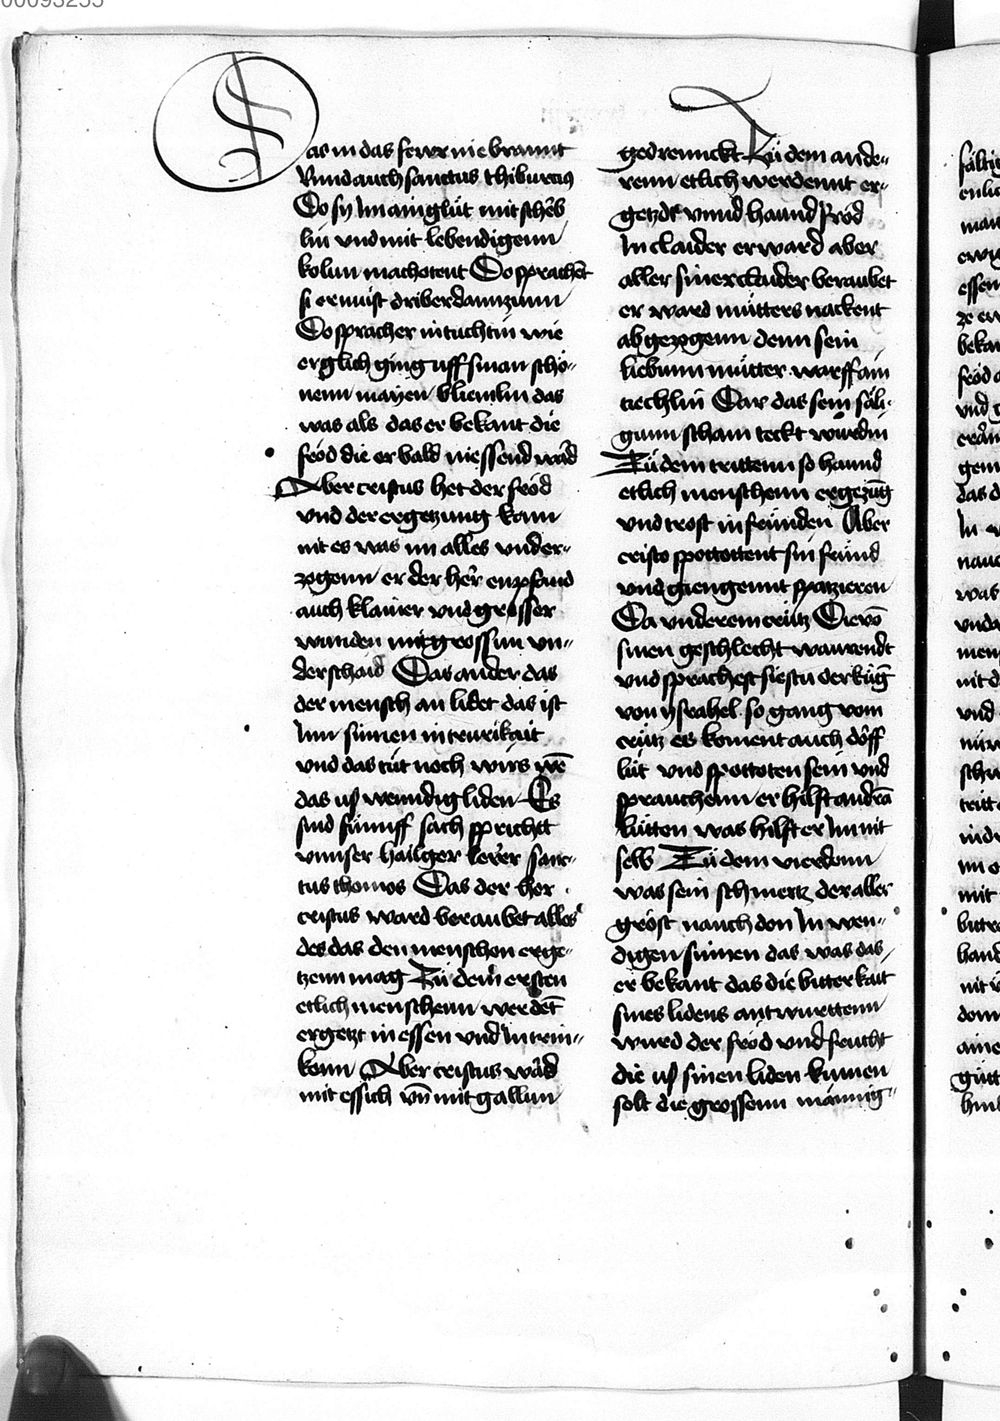 00093255
Das in das fewr nie brannt
Vnnd auch sanctus thiburcius
Do sy Im ain glůt mit schēb
lin vnd mit lebendigenn
kolun machotent Do sprachēt
si er müst driber dannzunn
Do sprach er in tuchtin wie
er glich ging uff sinan schö-
nenn mayen blïemlin das
was als das er bekant die
fröd die er bald niessend wād
Aber cristus het der fröd
vnd der ergetzung kann
nit es was im alles vnder-
zogenn er der her enpfand
auch klainer vnd grosser
wunden mit grossim vn-
derschaid Das ander das
der mensch an lidet das ist
Inn sinnen in trurikait
vnd das tůt noch wirs wē
das usz wenndig liden Es
sind fünnff sach sprichtt
vnnser hailger lerer sanc-
tus thomos Das der her
cristus ward beraubet alles
des das den menschon erge-
tzenn mag Zů dem ersten
etlich menschenn werdēt
ergetzt in essen vnd In trin-
kenn Aber cristus wād
mit essich vn̄ mit gallun
gedrennckt Zů dem ande-
renn etlich werdennt er-
getzdt vnnd haund fröd
In claider er ward aber
aller siner claider beraubet
er ward můtters nackent
abgezogenn denn sein
liebunn můtter warff ain
tiechlin Dar das sem säli-
gunn scham teckt wurdin
Zů dem trittenn so haund
etlich menschenn ergezūg
vnd trost in fründen Aber
cristo spottottent sin fründ
vnd giengennt spatzieren
Da vnderem crütz Die vō
sinen geschlecht waurendt
vnd sprachest siestu der küg
von ysrahel so gang vom
crütz es koment auch döff
lüt vnd spottoten sein vnd
sprauchenn er hilft andrā
lütten was hilft er Im nit
selb Zů dem vierdenn
was sein schmertz der aller
gröst nauch den In wen-
digen sinnen das was das
er bekant das die bitterkait
sines lidens antwurttenn
wurd der fröd vnd frucht
die usz sinen liden kumen
solt die grossenn männig-